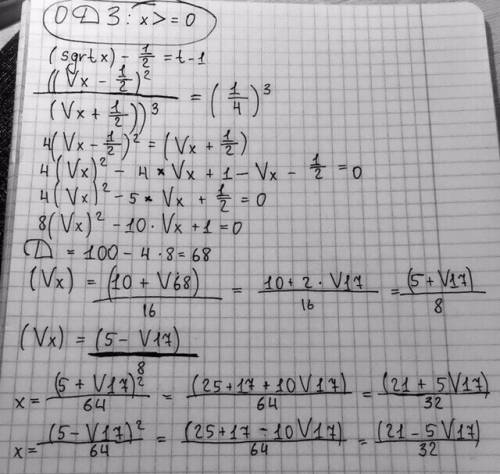 ОДЗ: x>=0
(sgrt x) - 1/2 = t-1
((Vx - 1/2)^2 / (Vx + 1/2))^3 = (1/4)^3
4(Vx - 1/2)^2 = (Vx + 1/2)
4(Vx)^2 - 4 * Vx + 1 - Vx - 1/2 = 0
4(Vx)^2 - 5 * Vx + 1/2 = 0
8(Vx)^2 - 10 · Vx + 1 = 0
D = 100 - 4 · 8 = 68
(Vx) = (10 + V68)/16 = 10 + 2 · V17/16 = (5 + V17)/8
(Vx) = (5 - V17)/8
x = (5 + V17)^2/64 = (25 + 17 + 10V17)/64 = (21 + 5V17)/32
x = (5 - V17)^2/64 = (25 + 17 - 10V17)/64 = (21 - 5V17)/32